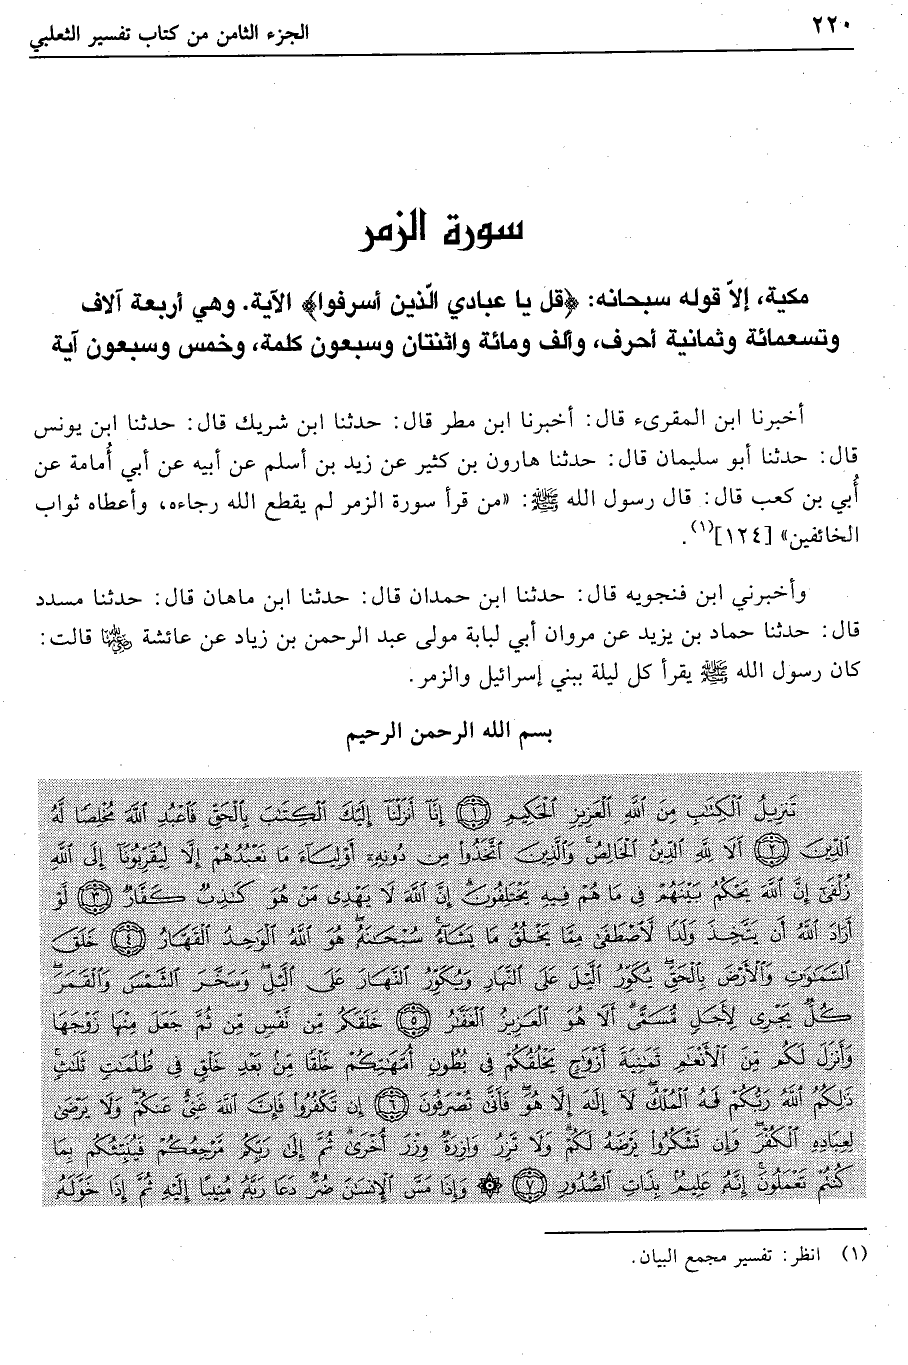 ٢٢٠
الجزء الثامن من كتاب تفسير الثعلبي
سورة الزمر
مكية، إلاّ قوله سبحانه: ﴿قل يا عبادي الّذين أسرفوا﴾ الآية. وهي أربعة آلاف
وتسعمائة وثمانية أحرف، وألف ومائة واثنتان وسبعون كلمة، وخمس وسبعون آية
أخبرنا ابن المقرىء قال: أخبرنا ابن مطر قال: حدثنا ابن شريك قال: حدثنا ابن يونس
قال: حدثنا أبو سليمان قال: حدثنا هارون بن كثير عن زيد بن أسلم عن أبيه عن أبي أُمامة عن
أُبي بن كعب قال: قال رسول الله ﷺ: «من قرأ سورة الزمر لم يقطع الله رجاءه، وأعطاه ثواب
الخائفين» [١٢٤](١).
وأخبرني ابن فنجويه قال: حدثنا ابن حمدان قال: حدثنا ابن ماهان قال: حدثنا مسدد
قال: حدثنا حماد بن يزيد عن مروان أبي لبابة مولى عبد الرحمن بن زياد عن عائشة رضي الله عنها قالت:
كان رسول الله ﷺ يقرأ كل ليلة ببني إسرائيل والزمر.
بسم الله الرحمن الرحيم
تَنزِيلُ ٱلْكِتَٰبِ مِنَ ٱللَّهِ ٱلْعَزِيزِ ٱلْحَكِيمِ ١ إِنَّآ أَنزَلْنَآ إِلَيْكَ ٱلْكِتَٰبَ بِٱلْحَقِّ فَٱعْبُدِ ٱللَّهَ مُخْلِصًا لَّهُ
ٱلدِّينَ ٢ أَلَا لِلَّهِ ٱلدِّينُ ٱلْخَالِصُ ۚ وَٱلَّذِينَ ٱتَّخَذُوا۟ مِن دُونِهِۦٓ أَوْلِيَآءَ مَا نَعْبُدُهُمْ إِلَّا لِيُقَرِّبُونَآ إِلَى ٱللَّهِ
زُلْفَىٰٓ إِنَّ ٱللَّهَ يَحْكُمُ بَيْنَهُمْ فِى مَا هُمْ فِيهِ يَخْتَلِفُونَ ۗ إِنَّ ٱللَّهَ لَا يَهْدِى مَنْ هُوَ كَٰذِبٌ كَفَّارٌ ٣ لَّوْ
أَرَادَ ٱللَّهُ أَن يَتَّخِذَ وَلَدًا لَّٱصْطَفَىٰ مِمَّا يَخْلُقُ مَا يَشَآءُ ۚ سُبْحَٰنَهُۥ ۖ هُوَ ٱللَّهُ ٱلْوَٰحِدُ ٱلْقَهَّارُ ٤ خَلَقَ
ٱلسَّمَٰوَٰتِ وَٱلْأَرْضَ بِٱلْحَقِّ ۖ يُكَوِّرُ ٱلَّيْلَ عَلَى ٱلنَّهَارِ وَيُكَوِّرُ ٱلنَّهَارَ عَلَى ٱلَّيْلِ ۖ وَسَخَّرَ ٱلشَّمْسَ وَٱلْقَمَرَ ۖ
كُلٌّ يَجْرِى لِأَجَلٍ مُّسَمًّى ۗ أَلَا هُوَ ٱلْعَزِيزُ ٱلْغَفَّٰرُ ٥ خَلَقَكُم مِّن نَّفْسٍ وَٰحِدَةٍ ثُمَّ جَعَلَ مِنْهَا زَوْجَهَا
وَأَنزَلَ لَكُم مِّنَ ٱلْأَنْعَٰمِ ثَمَٰنِيَةَ أَزْوَٰجٍ ۚ يَخْلُقُكُمْ فِى بُطُونِ أُمَّهَٰتِكُمْ خَلْقًا مِّنۢ بَعْدِ خَلْقٍ فِى ظُلُمَٰتٍ ثَلَٰثٍ ۚ
ذَٰلِكُمُ ٱللَّهُ رَبُّكُمْ لَهُ ٱلْمُلْكُ ۖ لَآ إِلَٰهَ إِلَّا هُوَ ۖ فَأَنَّىٰ تُصْرَفُونَ ٦ إِن تَكْفُرُوا۟ فَإِنَّ ٱللَّهَ غَنِىٌّ عَنكُمْ ۖ وَلَا يَرْضَىٰ
لِعِبَادِهِ ٱلْكُفْرَ ۖ وَإِن تَشْكُرُوا۟ يَرْضَهُ لَكُمْ ۗ وَلَا تَزِرُ وَازِرَةٌ وِزْرَ أُخْرَىٰ ۗ ثُمَّ إِلَىٰ رَبِّكُم مَّرْجِعُكُمْ فَيُنَبِّئُكُم بِمَا
كُنتُمْ تَعْمَلُونَ ۚ إِنَّهُۥ عَلِيمٌۢ بِذَاتِ ٱلصُّدُورِ ٧ ۞ وَإِذَا مَسَّ ٱلْإِنسَٰنَ ضُرٌّ دَعَا رَبَّهُۥ مُنِيبًا إِلَيْهِ ثُمَّ إِذَا خَوَّلَهُۥ
(١) انظر: تفسير مجمع البيان.